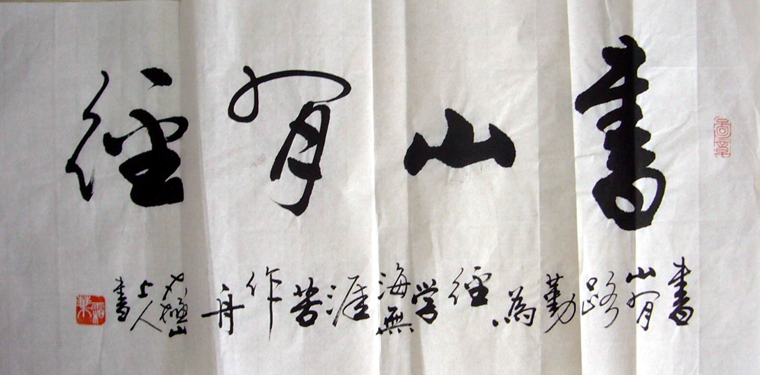 書山有径
書山有路勤為径学海無涯苦作舟
山上人書